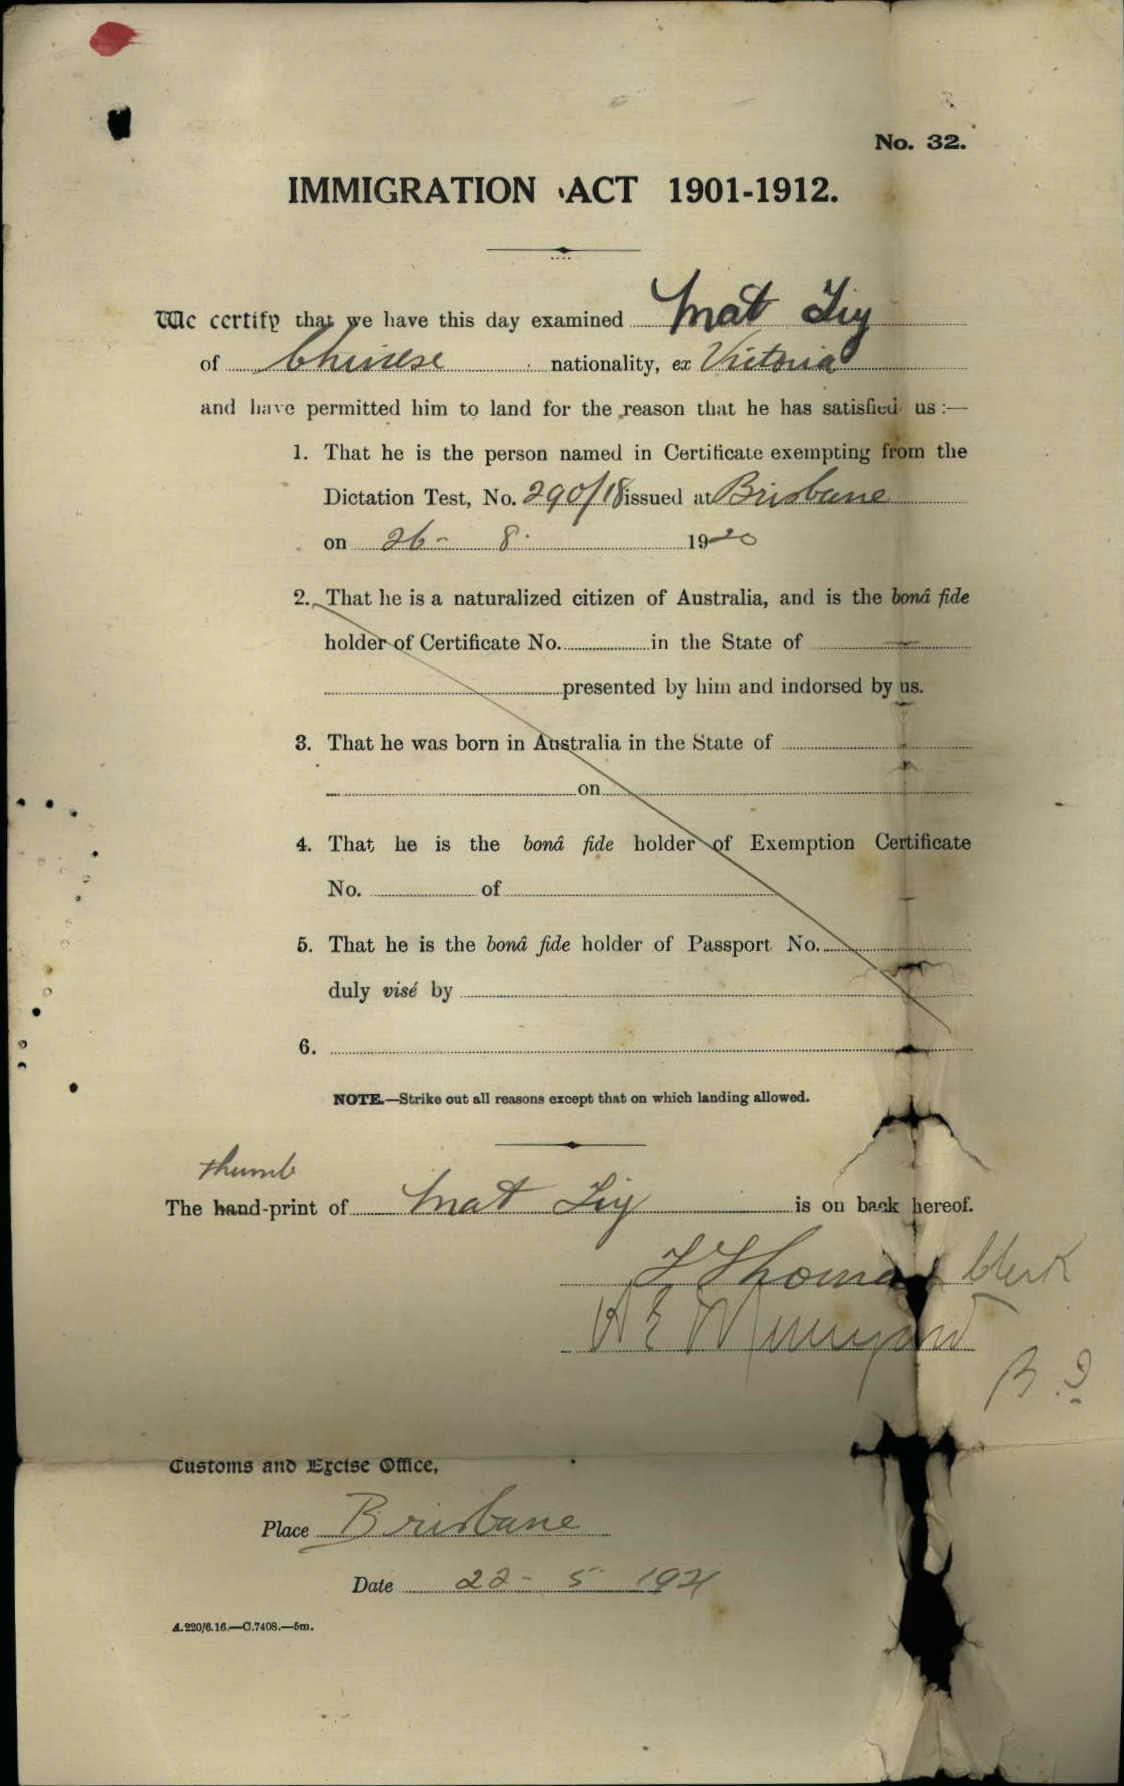 No. 32.
IMMIGRATION ACT 1901-1912.
We certify that we have this day examined Mat Liy
of Chinese nationality, ex Victoria
and have permitted him to land for the reason that he has satisfied us :—
1. That he is the person named in Certificate exempting from the
Dictation Test, No. 290/18 issued at Brisbane
on 26- 8. 1920
2. That he is a naturalized citizen of Australia, and is the bonâ fide
holder of Certificate No. in the State of
presented by him and indorsed by us.
3. That he was born in Australia in the State of
on
4. That he is the bonâ fide holder of Exemption Certificate
No. of
5. That he is the bonâ fide holder of Passport No.
duly visé by
6.
NOTE.—Strike out all reasons except that on which landing allowed.
thumb
The hand-print of Mat Liy is on back hereof.
Thomas Clerk
A E
Customs and Excise Office,
Place Brisbane
Date 22- 5 1921
A.220/6.16.—C.7408.—5m.